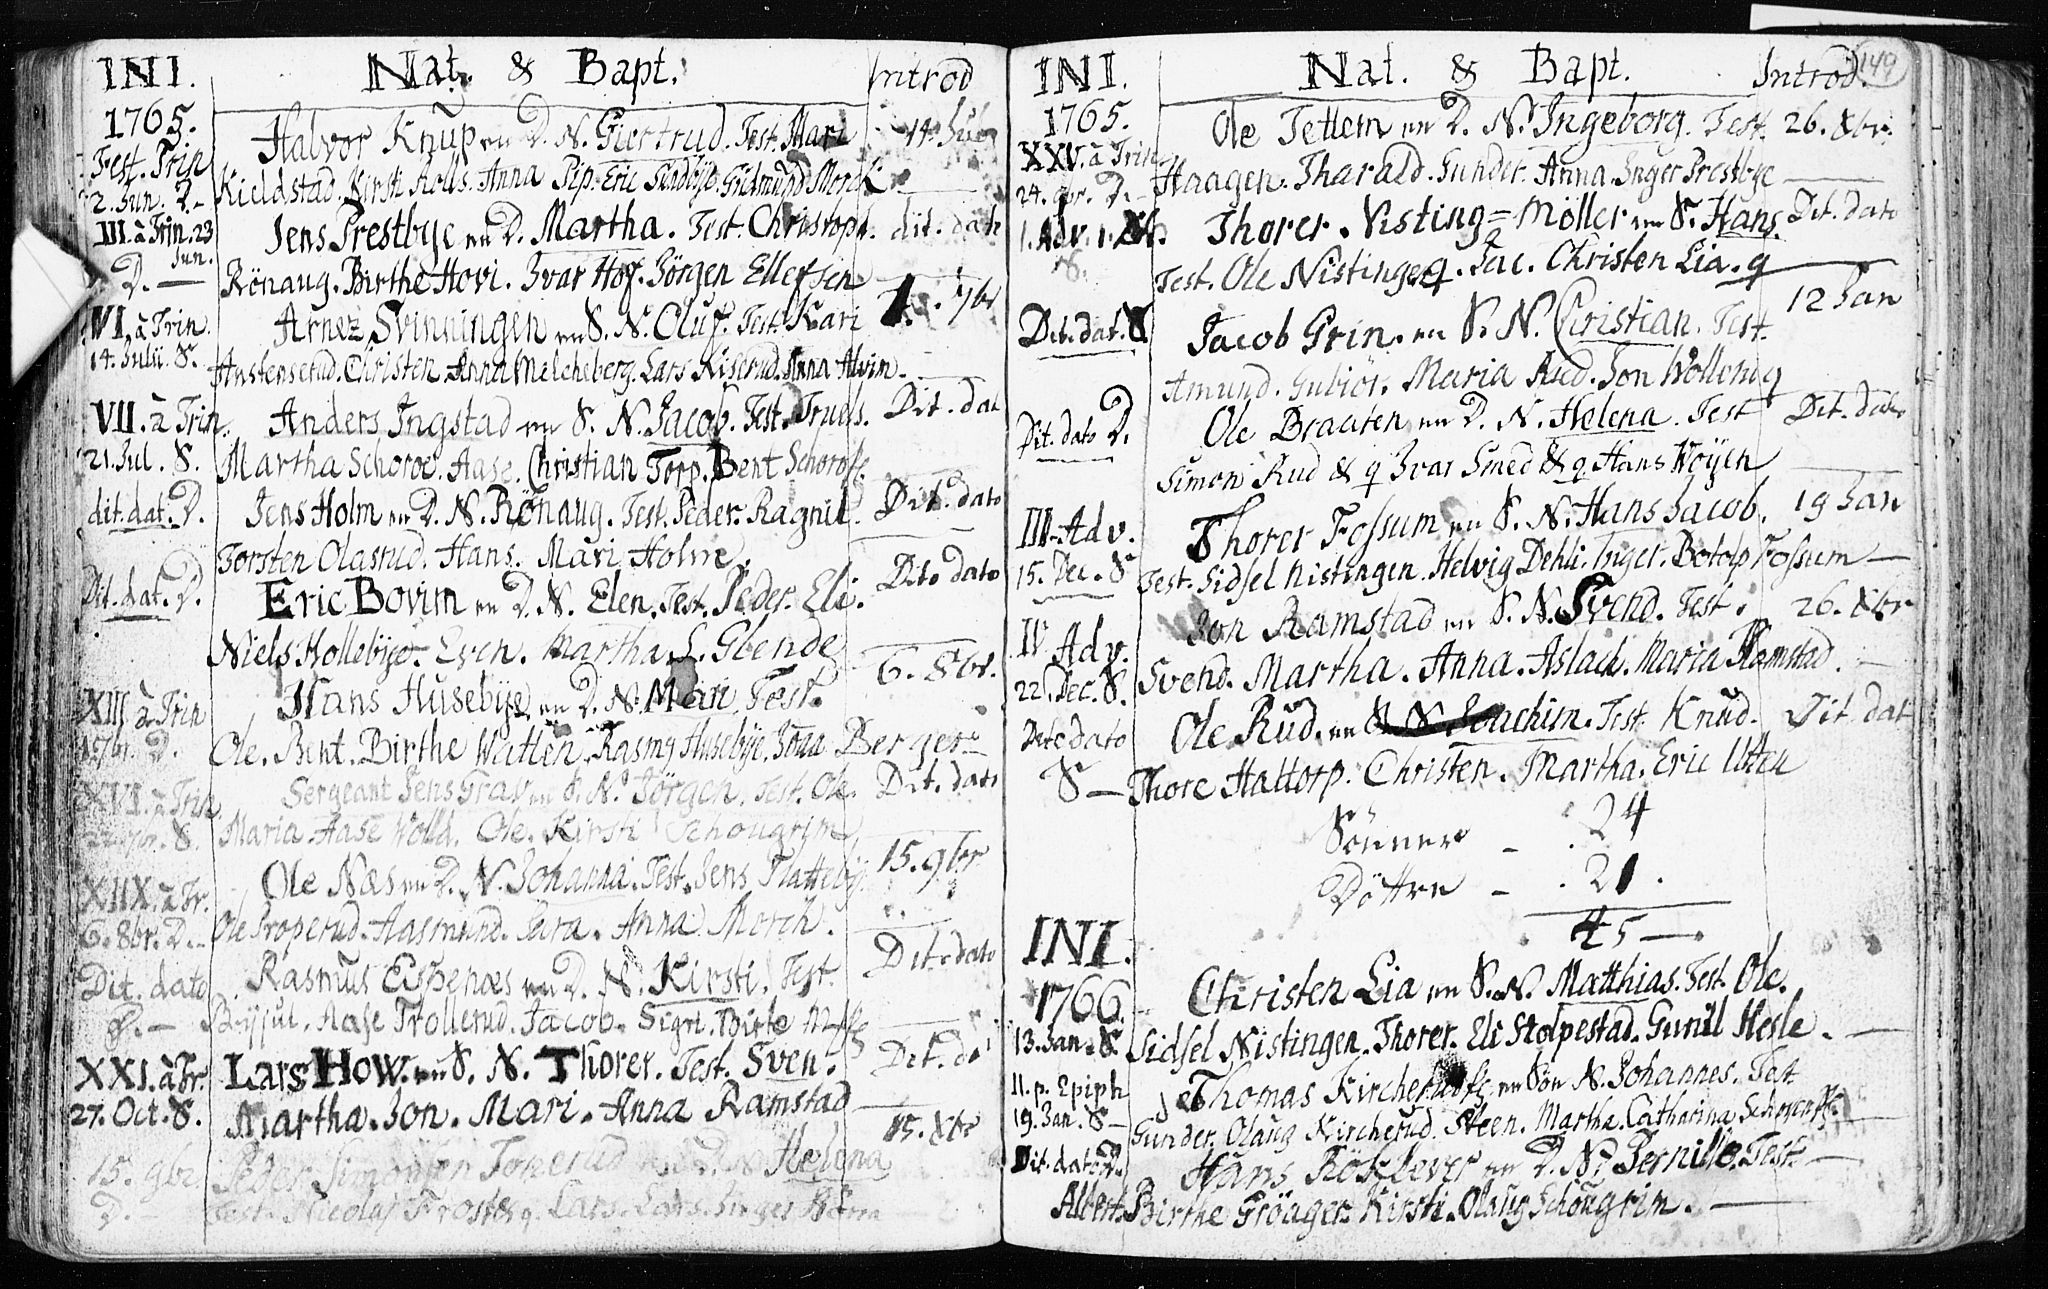 INI. Nat. & Bapt. Introd
1765. Halvor Knup en D. N. Giertrud. Test. Mari 14. Julii
Fest. Trin Kieldstad. Kirsti Kolls. Anna Pip. Eric Sandbye. Gudmund Morch
2. Jun. D. -
III. à Trin. 23 Jens Prestbye en D. Martha. Test. Christoph. dit. dat
Jun.
D. — Rönaug. Birthe Hovi. Ivar Hof. Jörgen Ellefsen
VI. à Trin. Arne Svinningen en S. N. Oluf. Test. Kari 1. 7br
14. Julii. S. Austenserud. Christen. Anna Melcheberg. Lars Kiserud. Anna Alvim.
VII. à Trin. Anders Ingstad en S. N. Jacob. Test. Truels. Dit. dat
21. Jul. S. Martha Schoroe. Aase. Christian Torp. Bent Schorofs.
dit. dat. D. Jens Holm en D. N. Rönaug. Test. Peder. Ragnil. Dit. dato
Torsten Olasrud. Hans. Mari Holm.
Dit. dat. D. Eric Bovim en D. N. Elen. Test. Peder. Eli. Dito dato
Niels Hollebye. Even. Martha L. Glende
XIII à Trin Hans Husebye en D. N. Mari. Test. 6. 8br.
7br. D. Ole. Bent. Birthe Watlen. Rasmg Husebye. Berger
XVI. à Trin Sergeant Jens Grav en S. N. Jörgen. Test. Ole. Dit. dato
7br. S. Maria. Aase Wolld. Ole. Kirsti Schougrim
XIIX. à Tr. Ole Næs en D. N. Johanna. Test. Jens Plattebye 15. 9br
6. 8br. D. Ole Properud. Aasmund. Sara. Anna Morch.
Dit. dato Rasmus Espenæs en D. N. Kirsti. Test. Dit. dato
— Aase Trollerud. Jacob. Sigri. Birte
XXI. à Tr. Lars How. en S. N. Thorer. Test. Sven. Dit. dat
27. Oct. S. Martha. Jon. Mari. Anna Ramstad
15. 9br Peder Simonsen Tonerud en D. N. Helena 15. Xbr
D. — Test. Nicolaj Froster q. Lars. Lars. Inger
149
INI. Nat. & Bapt. Introd.
1765. Ole Tettem en D. N. Ingeborg. Test. 26. Xbr.
XXV. à Trin. Haagen. Tharald. Gunder. Anna. Inger Prestbye
24. 9br. D. -
1. Adv. 1. Xb. Thorer. Nisting=Möller en S. Hans. Dit. dato
S. Test. Ole Nistingen q. Jac. Christen Lia. q
Dit. dat. S Jacob Grin. en S. N. Christian. Test. 12 Jan
Amund. Gubiör. Maria Rud. Jon Wölleng
Dit. dato D. Ole Braaten en D. N. Helena. Test Dit. dato
Simon Rud & q Ivar Smed & q Hans Wöyen
III. Adv. Thorer Fossum en S. N. Hans Jacob. 19 Jan
15. Dec. S Test. Sidsel Nistingen. Helvig Dehli. Inger. Botolp Fossum —
IV Adv. Jon Ramstad en S. N. Svend. Test. 26. Xbr
22. Dec. S. Svend. Martha. Anna. Aslach. Maria Ramstad. —
Dito dato Ole Rud. en S. N. Joachim. Test. Knud. Dit dat
S — Thore Hattorp. Christen. Martha. Eric Utten
Sönner - . 24
Döttre - . 21.
45 —
INI.
1766. Christen Lia en S. N. Matthias. Test. Ole.
13. Jan. S. Sidsel Nistingen. Thorer. Eli Stolpestad. Gunil Hesle. —
II. p. Epiph Thomas en Sön N. Johannes. Test
19. Jan. S — Gunder. Olaug Kircherud. Steen. Martha. Catharina
Dit. dato D. Hans Röschever en D. N. Pernille. Test. —
Albert. Birthe Gröager. Kirsti. Olaug Schöugrim. —